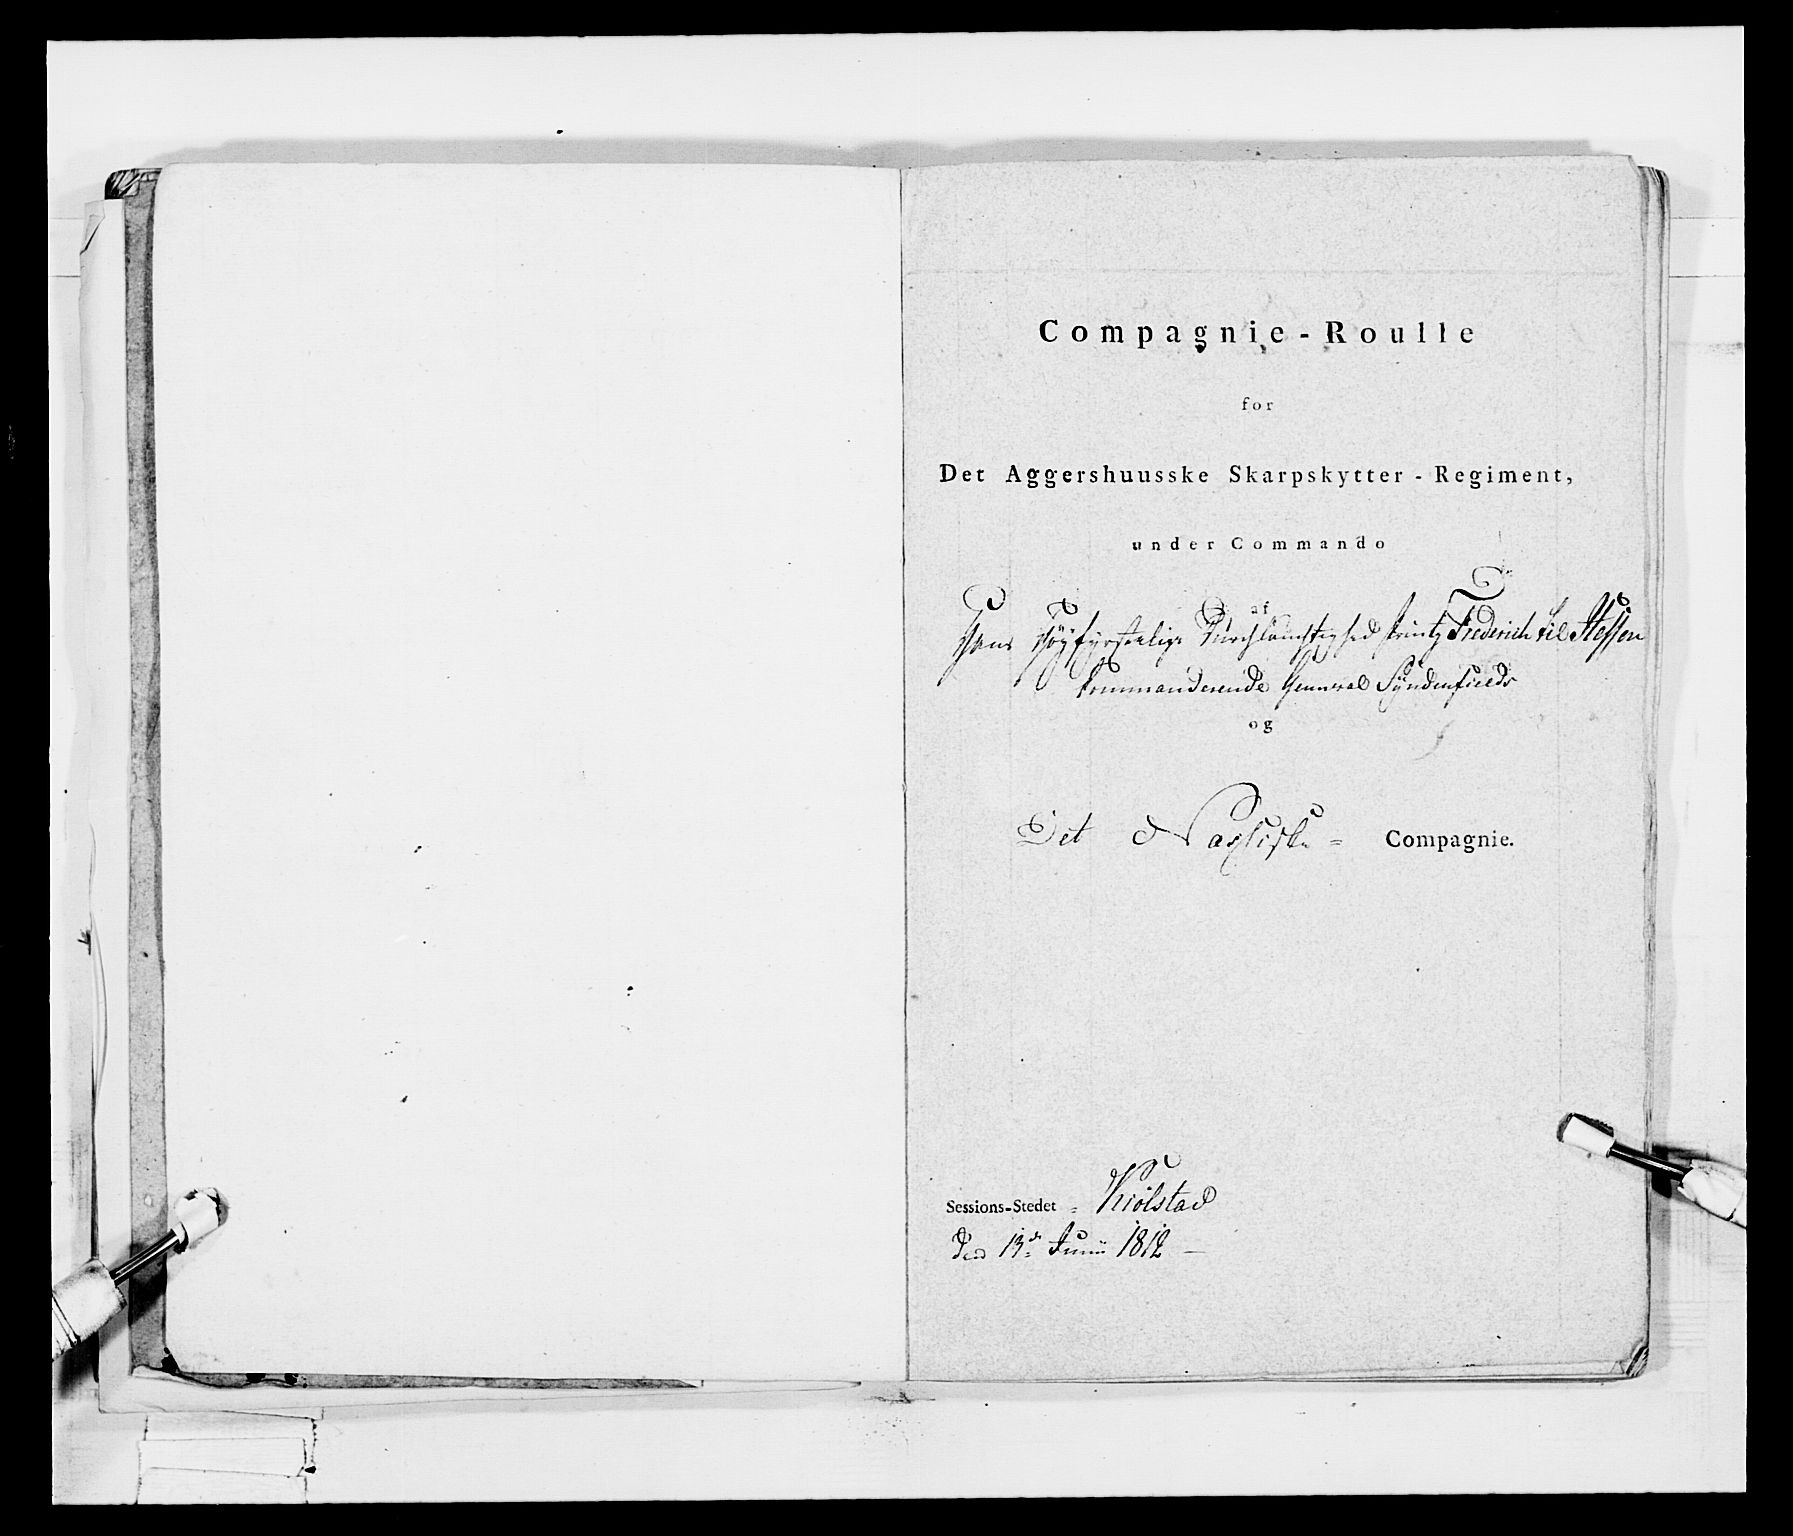 Compagnie-Roulle
for
Det Aggershuusske Skarpskytter-Regiment,
under Commando
af
Hans Höyfyrstelige Durchlauchtighed Printz Frederich til Hessen
Kommanderende General Syndenfields
og
Det Næsiske = Compagnie.
Sessions-Stedet = Kiölstad
Den 13de Junii 1812 —